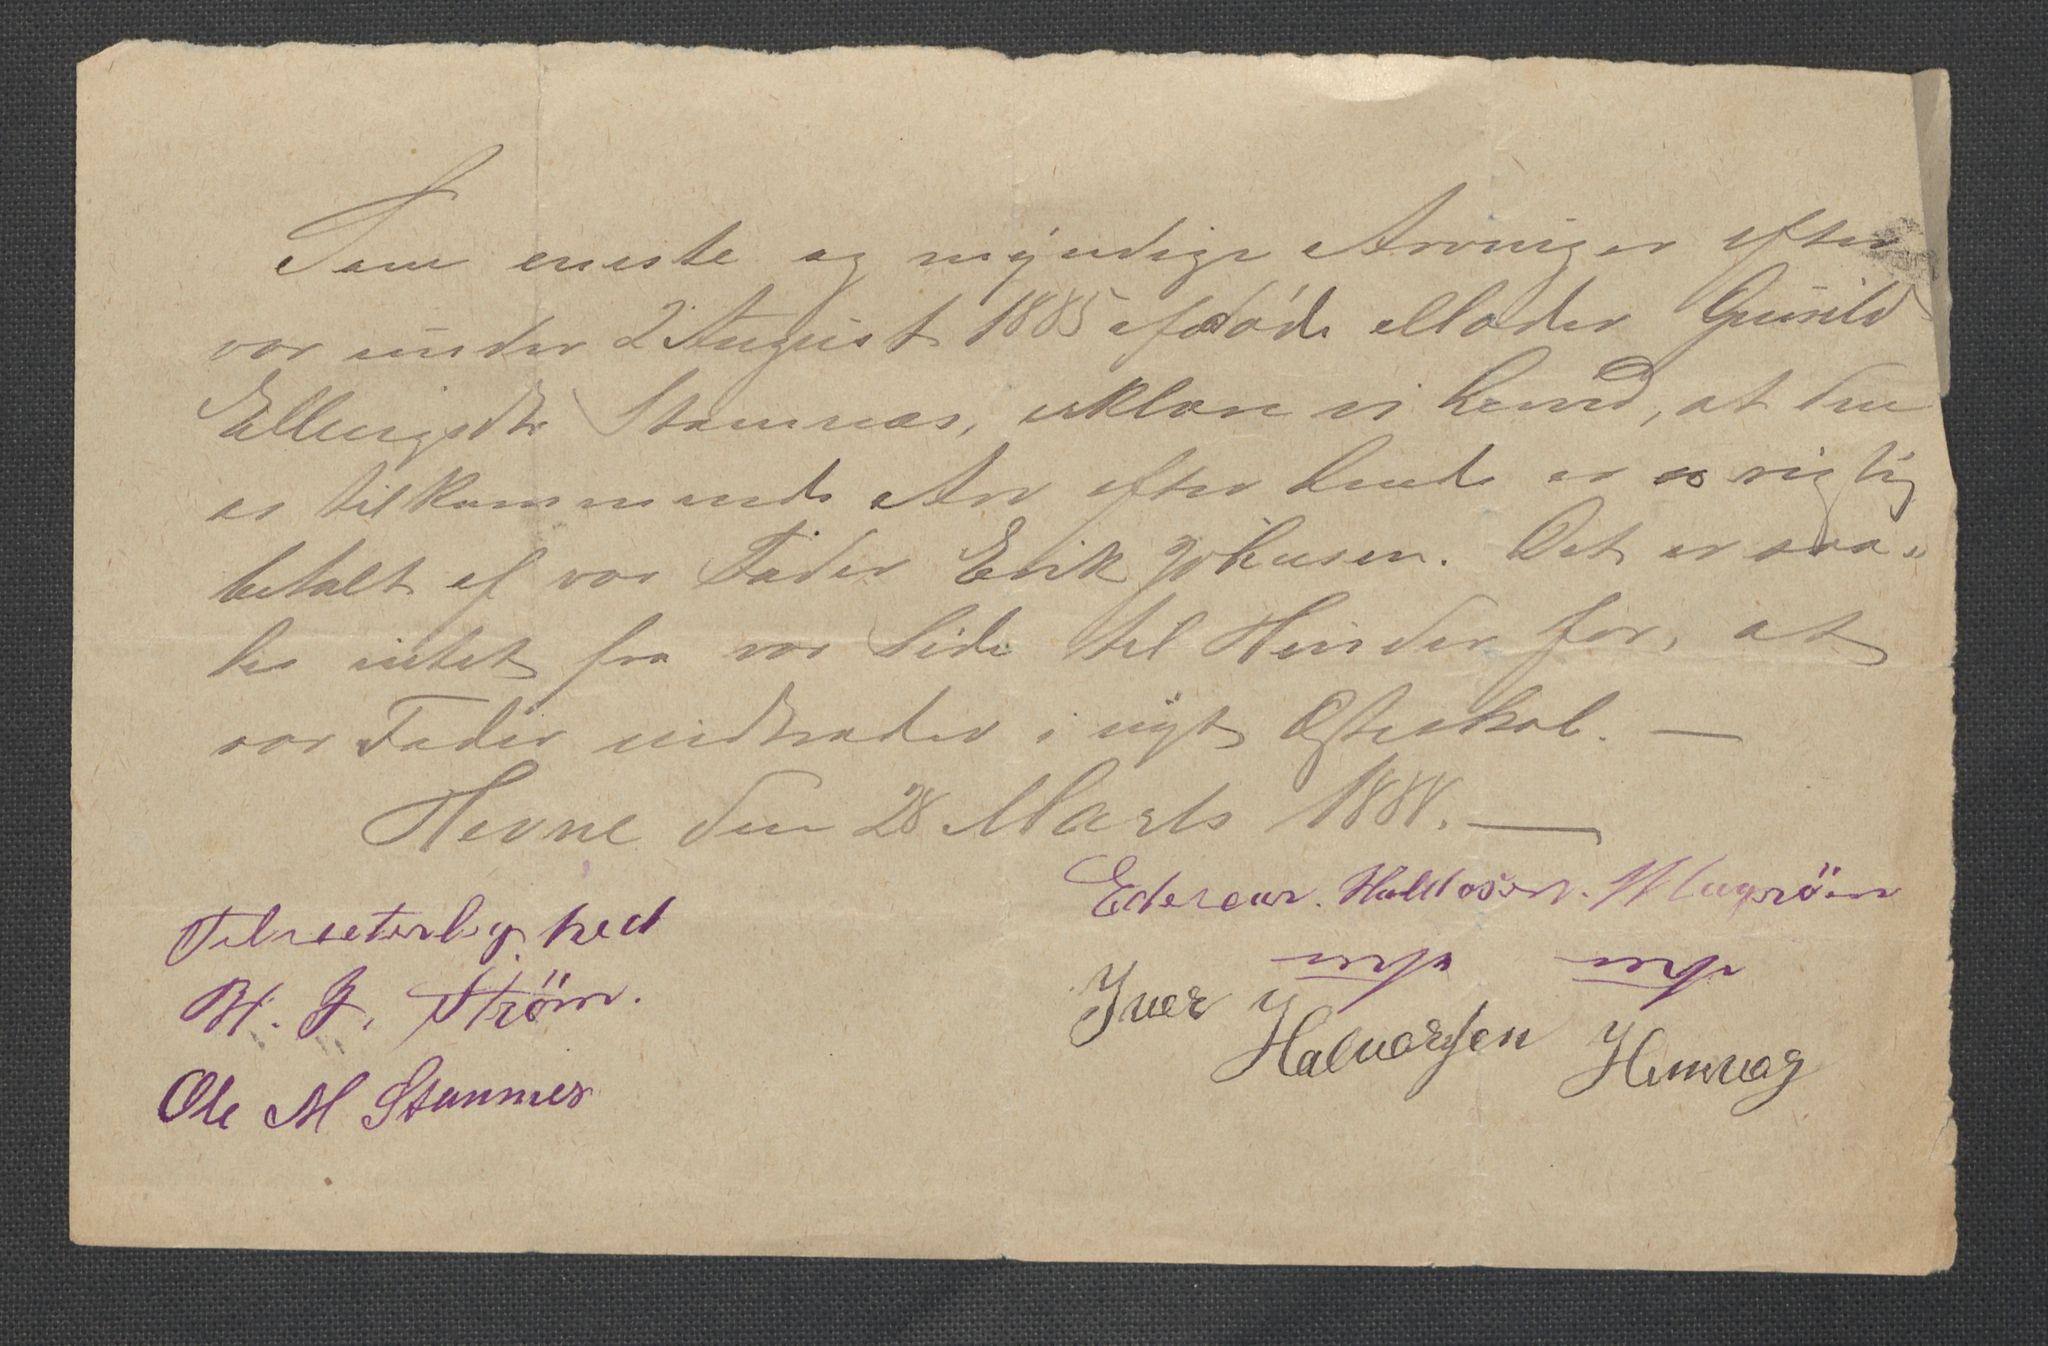 Som eneste og myndige Arvinger efter
vor under 2 August 1885 afdøde Moder Gunild
Ellingsdtr Stamnæs, erklære vi herved, at den
os tilkommende Arv efter hende er os rigtig
betalt af vor Fader Erik Johnsen. Det er saa-
les intet fra vor Side til Hinder for, at
vor Fader indtræder i nyt Ægteskab. —
Hevne den 28 Marts 1888. —
Haldosen.
Til veterlighed
H. J. Strøm.
Iver Halvorsen Hemvag
Ole M Stamnes